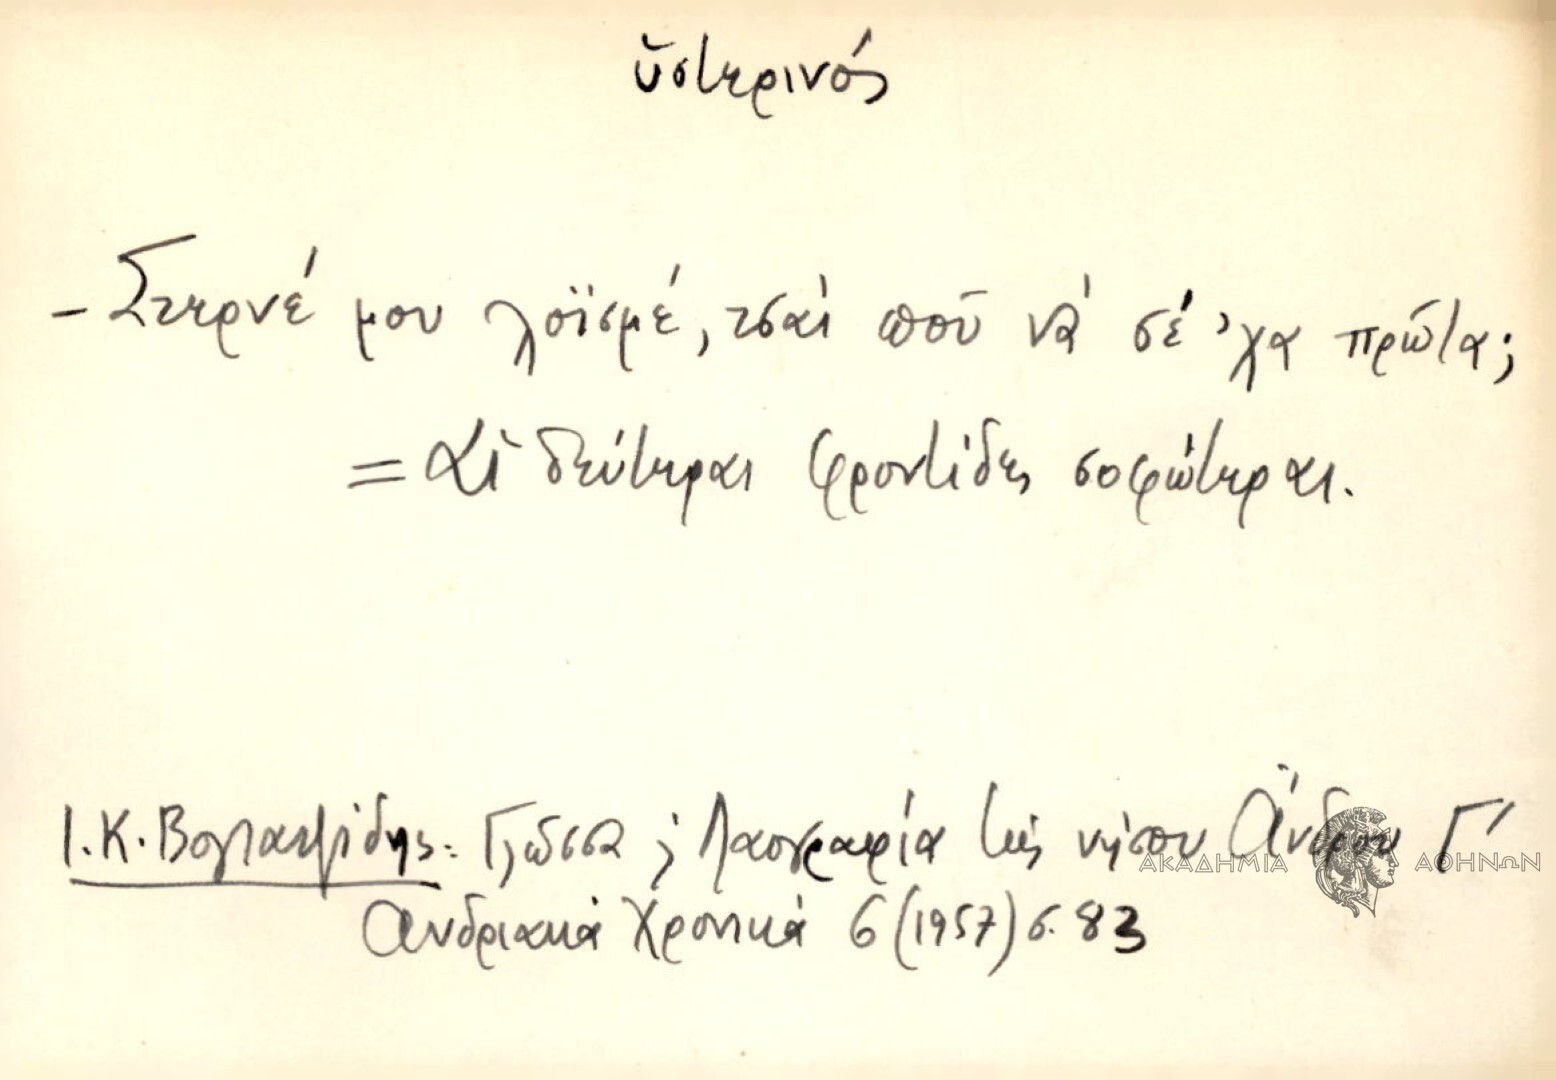 ὑστερινός
- Στερνέ μου λοϊσμέ, τσαὶ ποῦ νὰ σέ 'χα πρῶτα;
= Αἱ δεύτεραι φροντίδες σοφώτεραι.
Ι. Κ. Βογιατζίδης: Γλῶσσα κ Λαογραφία τῆς νήσου Ἄνδρου Γ'
Ἀνδριακὰ Χρονικά 6 (1957) σ. 83
ΑΚΑΔΗΜΙΑ ΑΘΗΝΩΝ